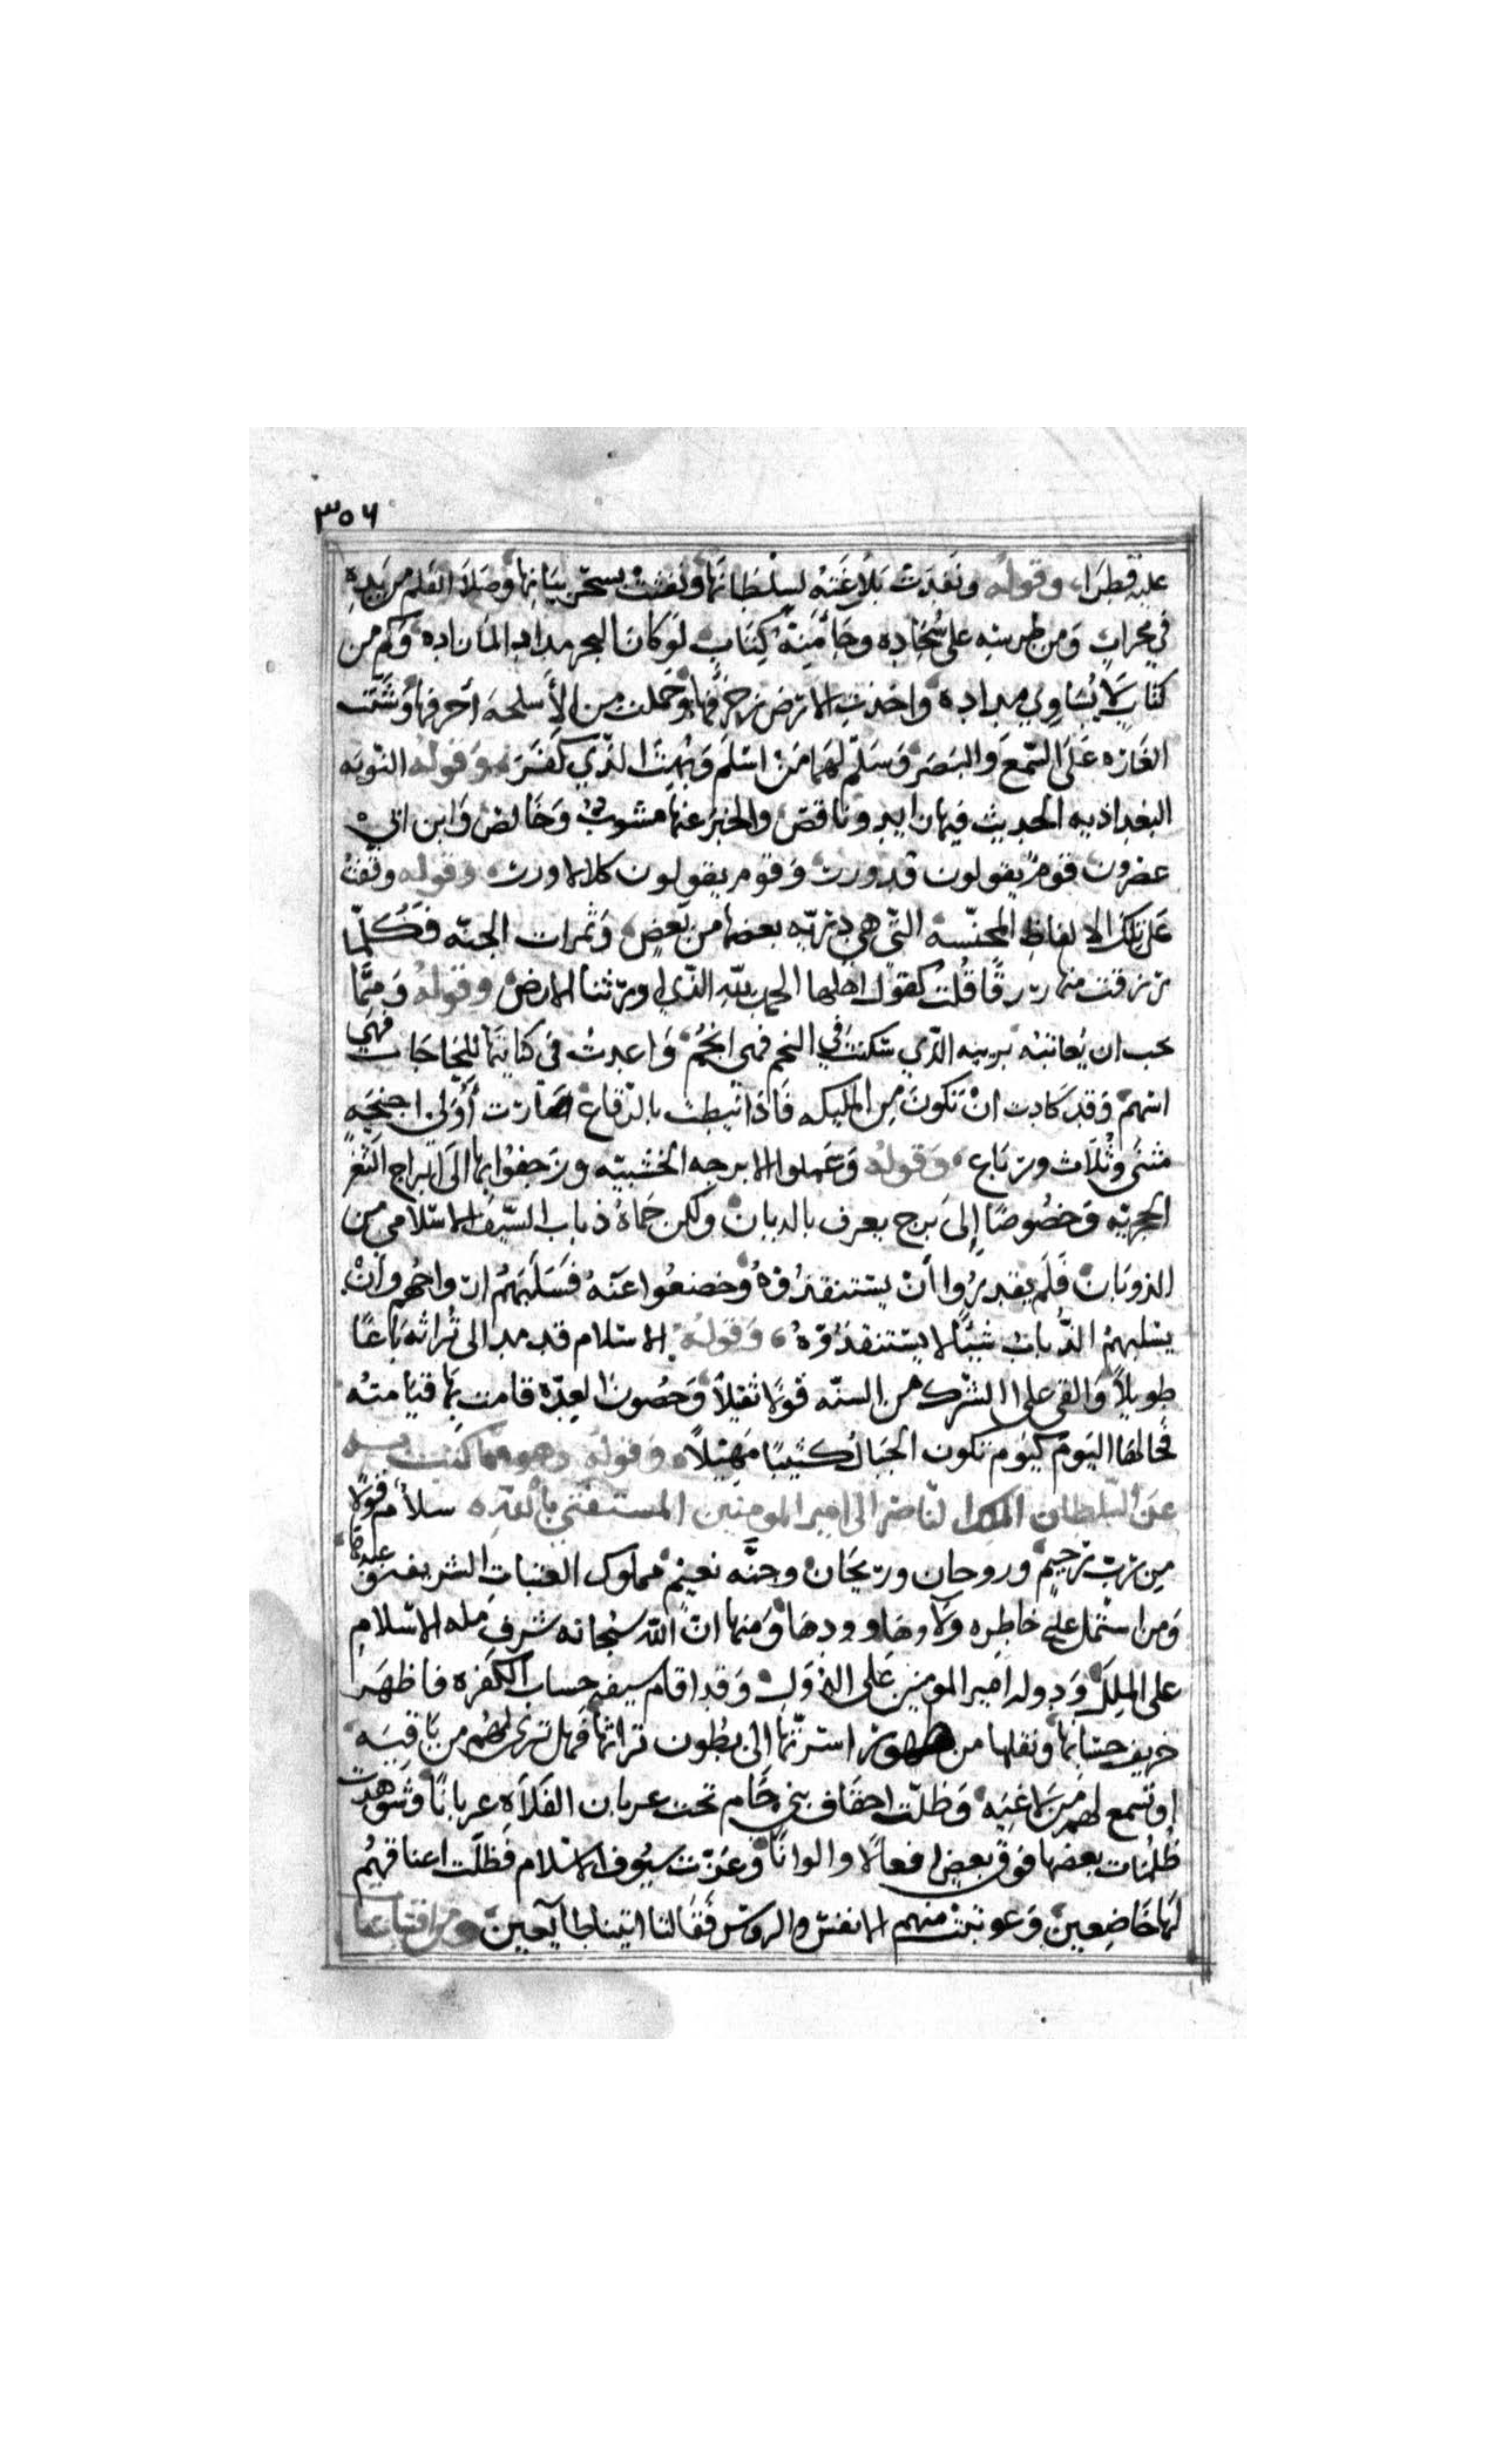 ٣٥٦
عليه قطرا، وقوله ونفدت بلاغته لسلطانها ونفثت بسحر بيانها وصلا القلم من يده
في محراب ومن طرسه على سجاده وجا منه كتاب لو كان البحر مدادا لما ناده وكم من
كتاب لا يساوي مداده واخذت الارض زخرفها وحملت من الأسلحه أحرفها وشنت
الغاره على السمع والبصر وسلم لها من اسلم وبهت الذي كفر وقوله النوبه
البغداديه الحديث فيها زايد وناقص والخبر عنها مشوب وخالص وابن ابي
عصرون قوم يقولون قد ورت وقوم يقولون كلا لا ورت وقوله وقفت
على تلك الالفاظ المجنسه التي هي ذريه بعضها من بعض وثمرات الجنه فكلما
رزقت منها رزقا قلت كقول اهلها الحمد لله الذي اورثنا الارض وقوله ومما
يجب ان يعاتبه بريه الذي سكنت في النجم فهي انجم واعدت في كتابتها للحاجات فهي
اسهم وقد كادت ان تكون من المليكه فاذا نيطت بالرقاع صارت أولى اجنحه
مثنى وثلاث ورباع، وقوله وعملوا الابرجه الخشبيه وزحفوا بها الى ابراج الثغر
الحجريه وخصوصا إلى برج يعرف بالذبان ولكن حماه ذباب السيف الاسلامي من
الذوبان فلم يقدروا أن يستنقذوه وخضعوا عنه فسلبهم ارواحهم وان
يسلبهم الذباب شيئا لا يستنقذوه، وقوله الاسلام قد مد الى تراثه باعا
طويلا والقى على الشرك من السنه قولا ثقيلا وحصون العدو قامت بها قيامته
فحالها اليوم كيوم تكون الجبال كثيبا مهيلا وقوله وهو مما كتب به
عن السلطان الملك الناصر الى امير المومنين المستضي بالله سلام قولا
من رب رحيم وروحان وريحان وجنه نعيم مملوك العتبات الشريفه وعبدها
ومن اشتمل على خاطره ولاوها وودها ومنها ان الله سبحانه شرف مله الاسلام
على الملل ودوله امير المومنين على الدول وقد اقام سيفه حساب الكفره فاظهر
حسابها ونقلها من ظهور اسرتها الى بطون تراثها فهل ترى لهم من باقيه
او تسمع لهم من لاغيه وظلت احقاف بني حام تحت عربان الفلاه عربانا وشوهدت
ظلمات بعضها فوق بعض افعالا والوانا وعزت سيوف الاسلام فظلت اعناقهم
لها خاضعين وعوتبت منهم الانفس والروس فقالتا اتينا طايعين ومن اقتباسا